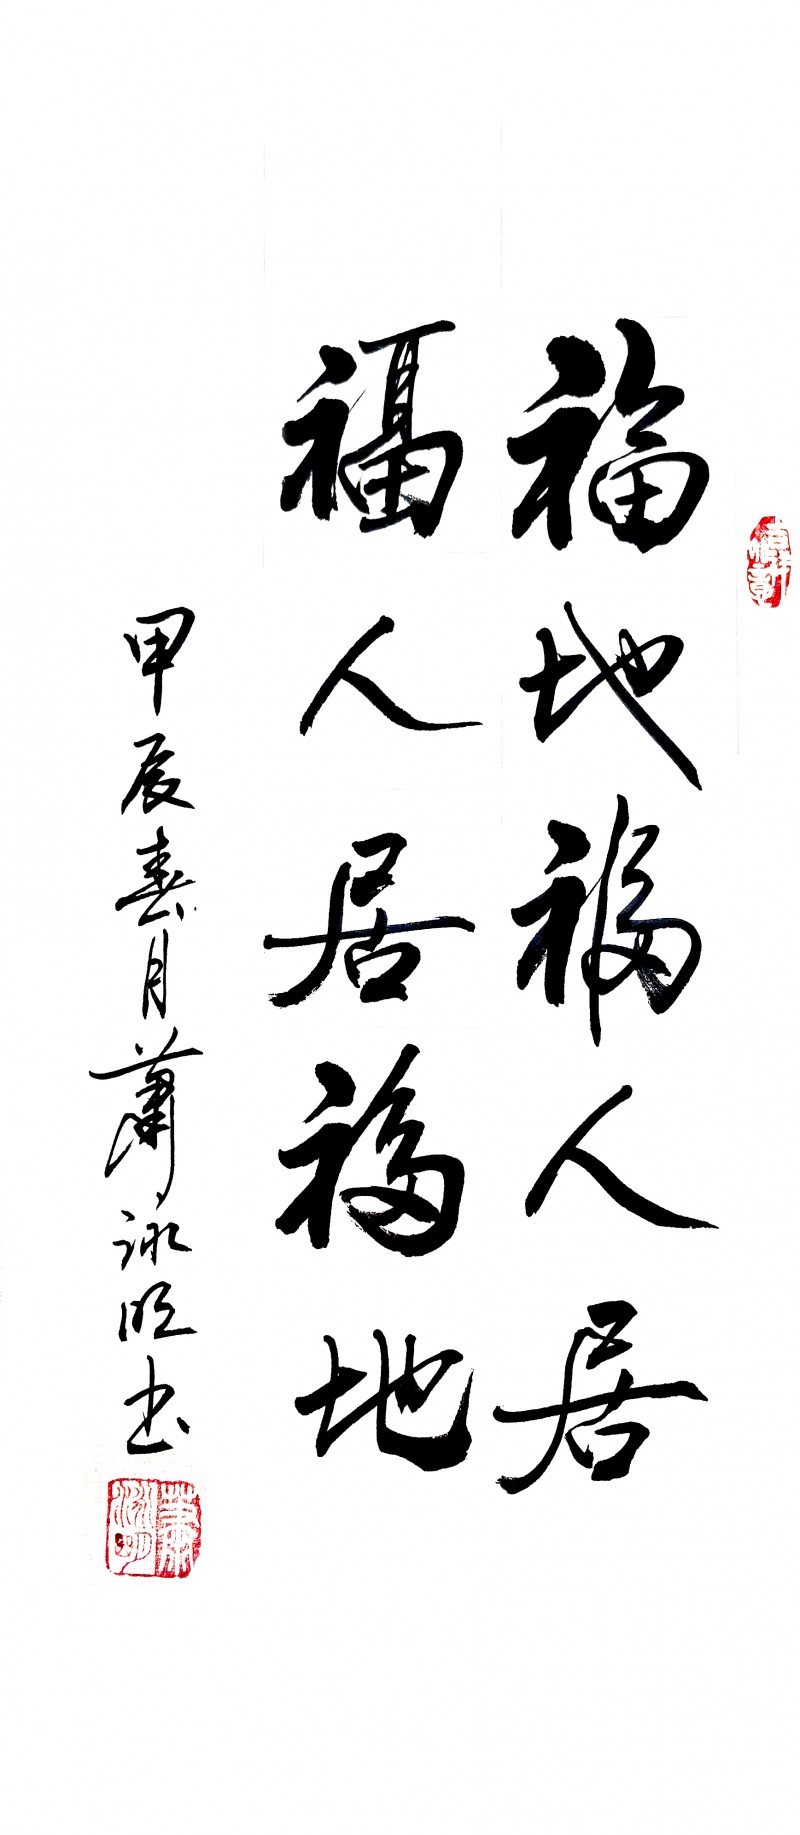 福地福人居
福人居福地
甲辰春月蕭詠明书